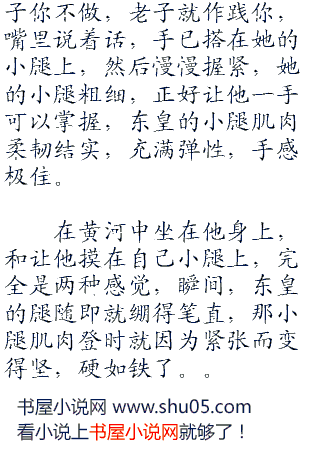 子你不做，老子就作践你，
嘴里说着话，手已搭在她的
小腿上，然后慢慢握紧，她
的小腿粗细，正好让他一手
可以掌握，东皇的小腿肌肉
柔韧结实，充满弹性，手感
极佳。
在黄河中坐在他身上，
和让他摸在自己小腿上，完
全是两种感觉，瞬间，东皇
的腿随即就绷得笔直，那小
腿肌肉登时就因为紧张而变
得坚，硬如铁了。。
书屋小说网 www.shu05.com
看小说上书屋小说网就够了！